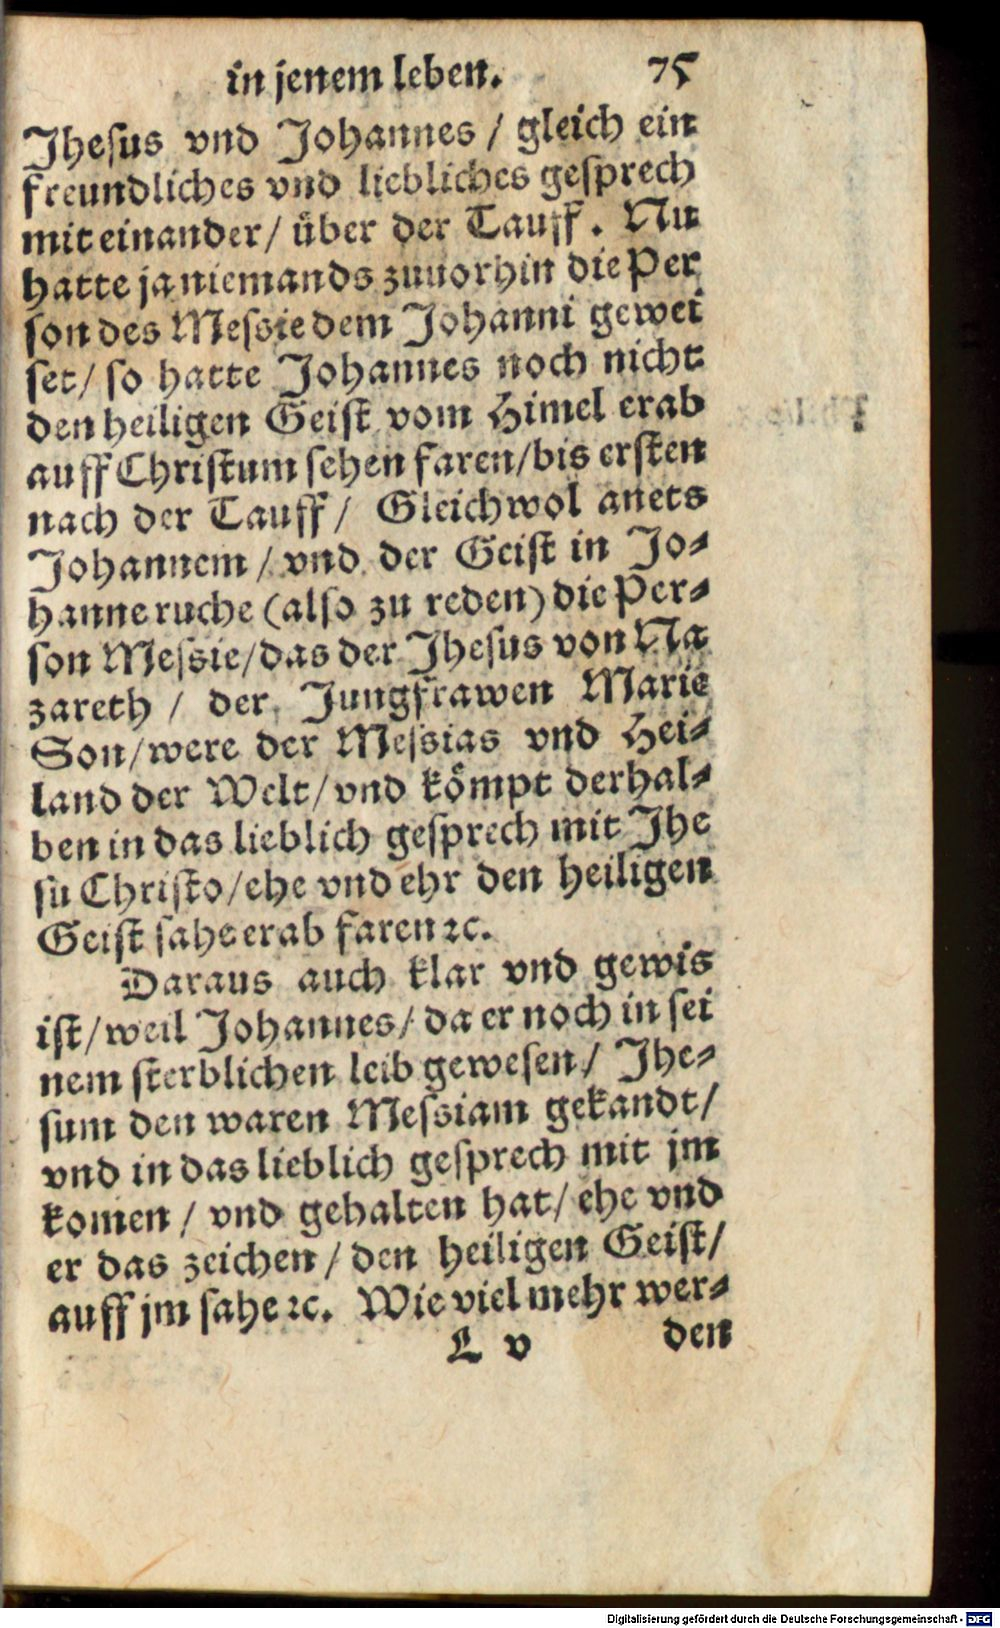 in jenem leben. 75
Jhesus vnd Johannes / gleich ein
freundliches vnd liebliches gesprech
mit einander / über der Tauff. Nu
hatte ja niemands zuuorhin die Per
son des Messie dem Johanni gewei
set / so hatte Johannes noch nicht
den heiligen Geist vom Himel erab
auff Christum sehen faren / bis ersten
nach der Tauff / Gleichwol anets
Johannem / vnd der Geist in Jo-
hanne ruche (also zu reden) die Per-
son Messie / das der Jhesus von Na
zareth / der Jungfrawen Marie
Son / were der Messias vnd Hei-
land der Welt / vnd kömpt derhal-
ben in das lieblich gesprech mit Jhe
su Christo / ehe vnd ehr den heiligen
Geist sahe erab faren ꝛc.
Daraus auch klar vnd gewis
ist / weil Johannes / da er noch in sei
nem sterblichen leib gewesen / Jhe-
sum den waren Messiam gekandt /
vnd in das lieblich gesprech mit jm
komen / vnd gehalten hat / ehe vnd
er das zeichen / den heiligen Geist /
auff jm sahe ꝛc. Wie viel mehr wer-
L v den
Digitalisierung gefördert durch die Deutsche Forschungsgemeinschaft - DFG